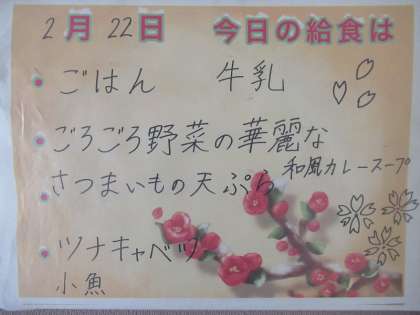 2月22日 今日の給食は
ごはん 牛乳
ごろごろ野菜の華麗な
和風カレースープ
さつまいもの天ぷら
ツナキャベツ
小魚